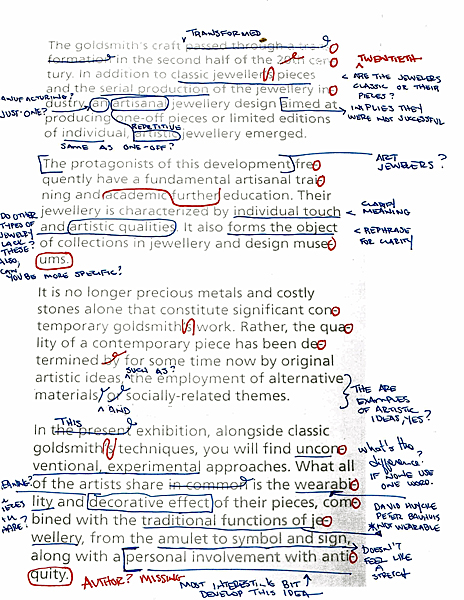 TRANSFORMED
The goldsmith's craft passed through a trans
formation in the second half of the 20th cen
TWENTIETH
tury. In addition to classic jewellery pieces
< ARE THE JEWELERS
CLASSIC OR THEIR
PIECES?
and the serial production of the jewellery in
ANUFACTURING?
dustry, an artisanal jewellery design aimed at
< IMPLIES THEY
WERE NOT SUCCESSFUL
JUST ONE?
producing one-off pieces or limited editions
REPETITIVE
of individual, artistic jewellery emerged.
SAME AS ONE-OFF?
The protagonists of this development fre
ART
JEWELERS?
quently have a fundamental artisanal trai
ning and academic further education. Their
jewellery is characterized by individual touch
< CLARIFY
MEANING
DO OTHER
TYPES OF
JEWELRY
LACK
THESE?
ALSO,
CAN
YOU BE MORE SPECIFIC?
and artistic qualities. It also forms the object
< REPHRASE
FOR CLARITY
of collections in jewellery and design muse
ums.
It is no longer precious metals and costly
stones alone that constitute significant con
temporary goldsmith's work. Rather, the qua
lity of a contemporary piece has been de
termined by for some time now by original
SUCH AS?
artistic ideas, the employment of alternative
materials, or socially-related themes.
^ AND
THE ARE
EXAMPLES
OF ARTISTIC
IDEAS, YES?
THIS
In the present exhibition, alongside classic
goldsmith's techniques, you will find uncon
ventional, experimental approaches. What all
WHAT'S THE
DIFFERENCE?
IF NONE USE
ONE WORD.
of the artists share in common is the wearabi
lity and decorative effect of their pieces, com
bined with the traditional functions of je
DAVID HUYCKE
PETER BAUHUIS
*NOT WEARABLE
wellery, from the amulet to symbol and sign,
along with a personal involvement with anti
DOESN'T
FEEL LIKE
A STRETCH
quity.
AUTHOR? MISSING
MOST INTERESTING BIT
DEVELOP THIS IDEA